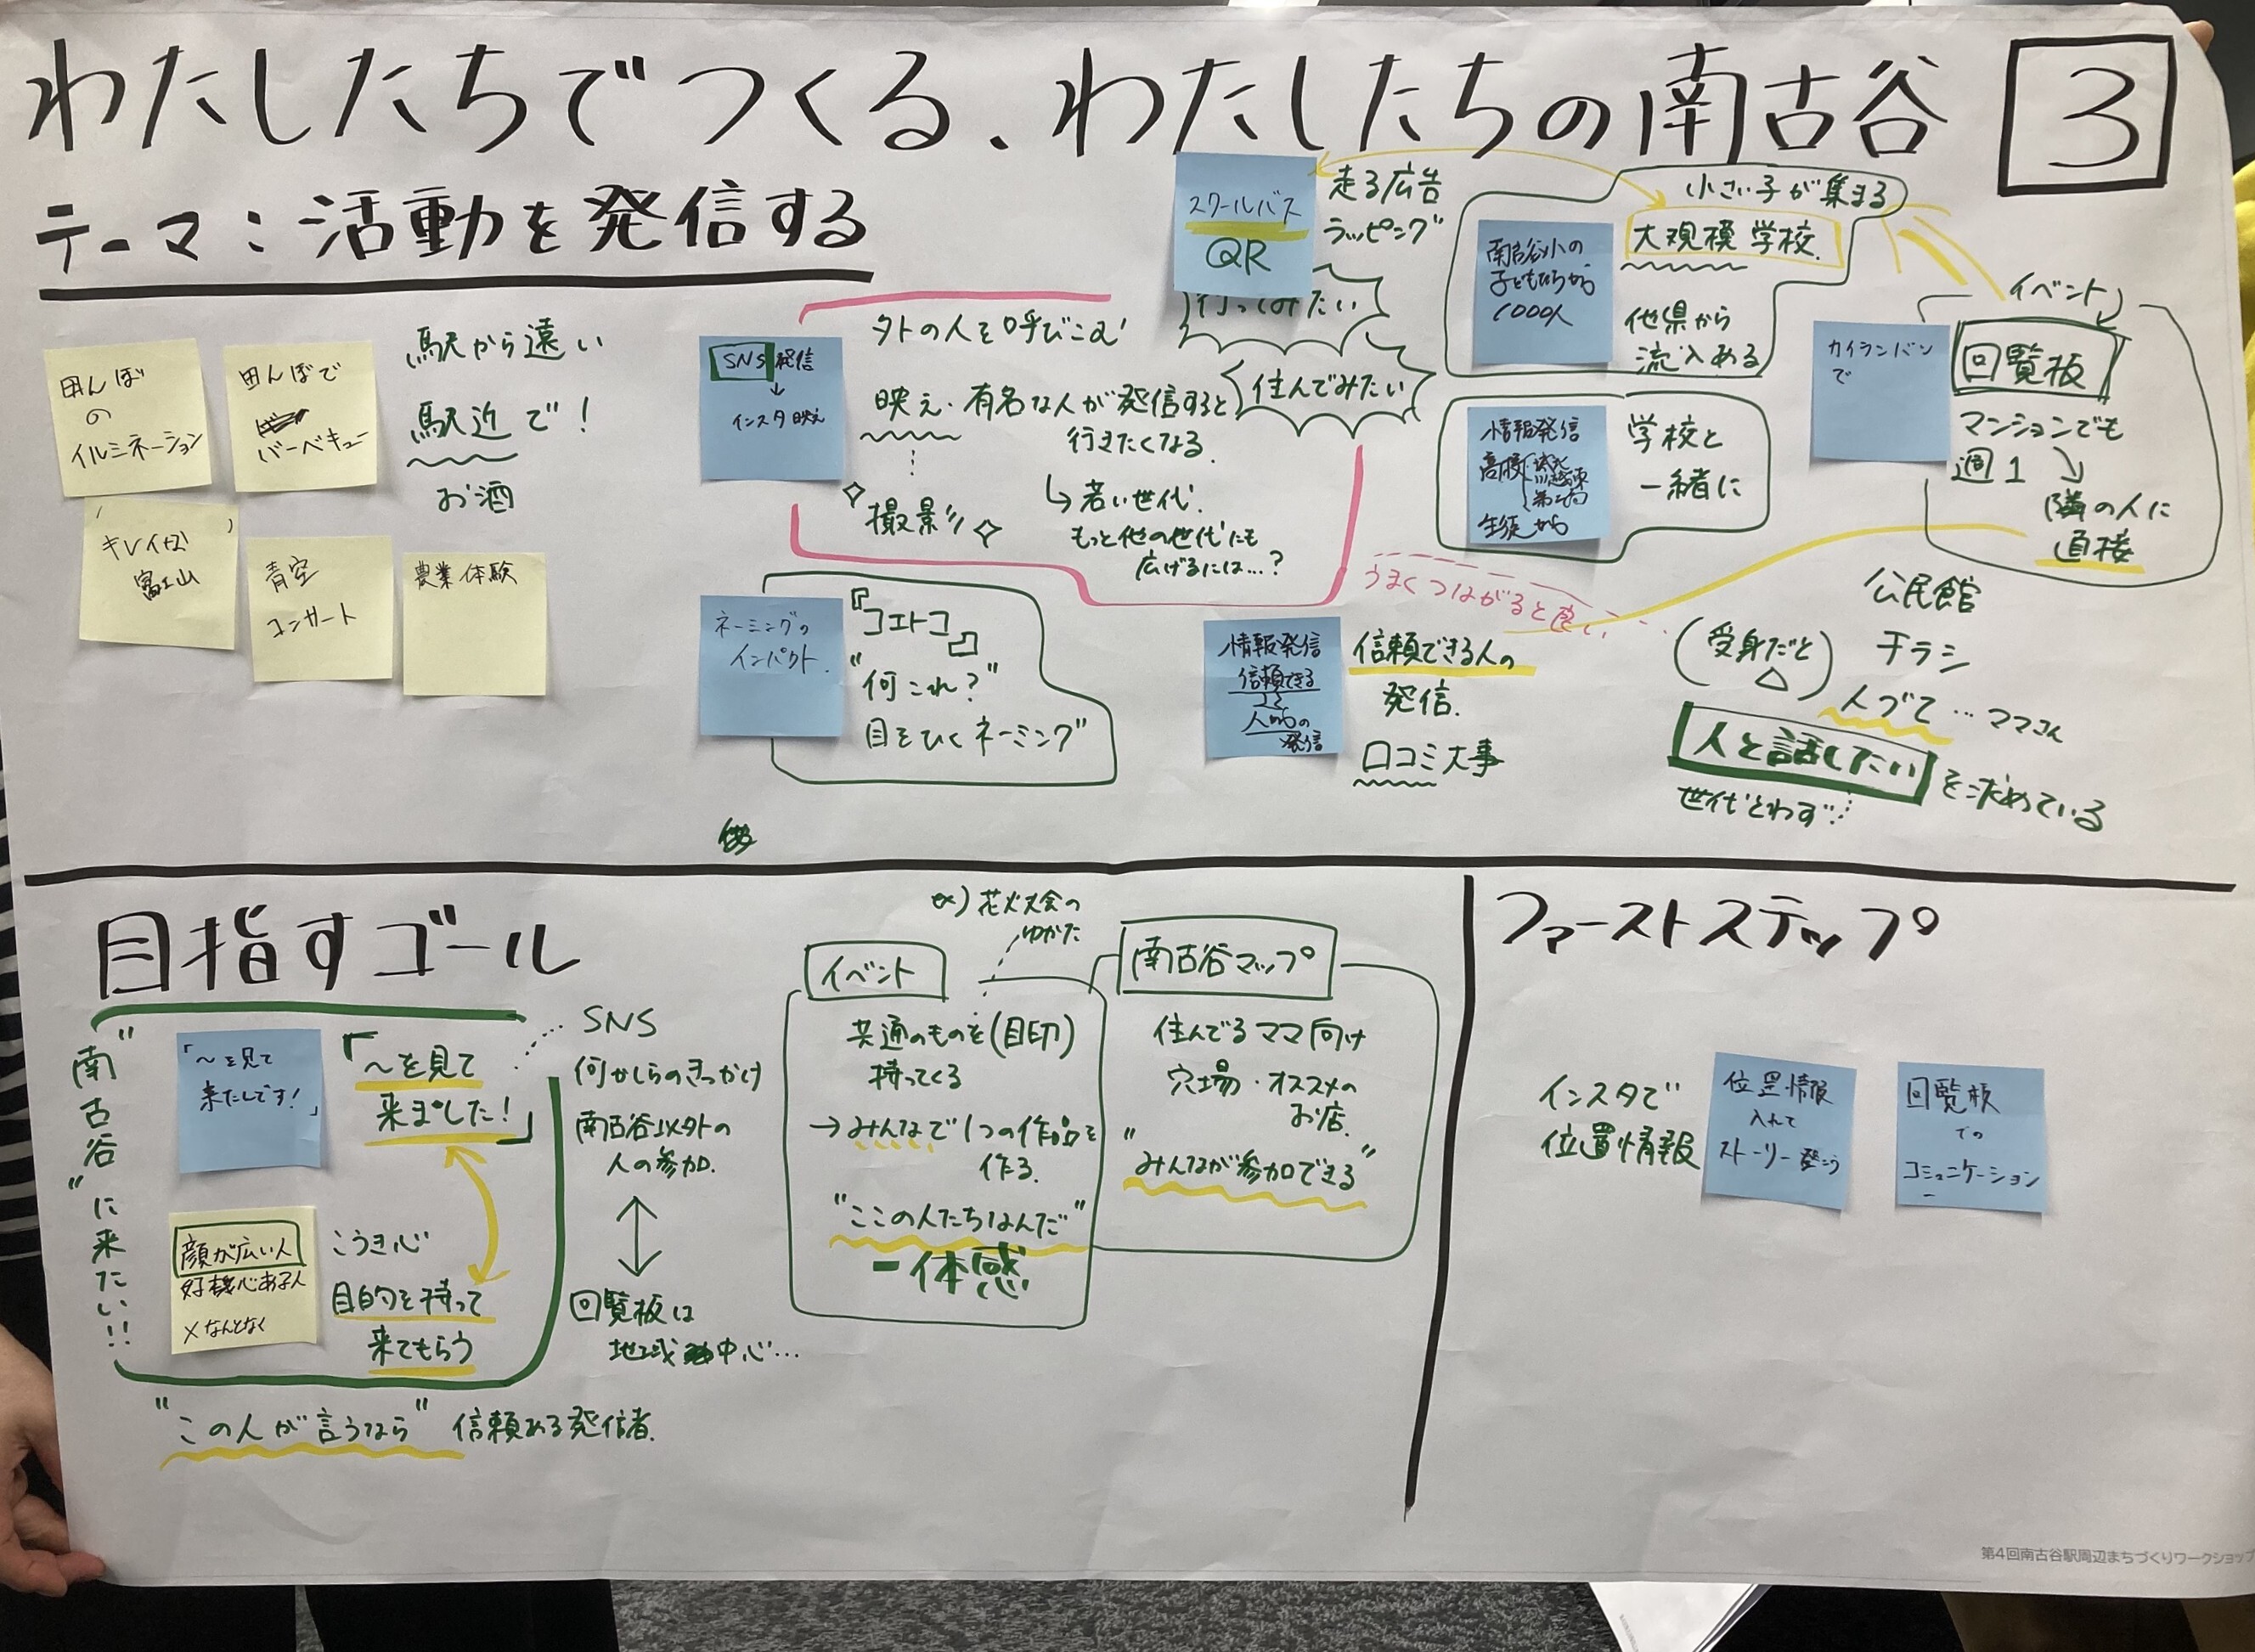 わたしたちでつくる、わたしたちの南古谷
3
テーマ：活動を発信する
田んぼ
の
イルミネーション
田んぼで
バーベキュー
駅から遠い
駅近で！
お酒
キレイな
富士山
青空
コンサート
農業体験
SNS発信
↓
インスタ映え
外の人を呼びこむ
映え・有名な人が発信すると
行きたくなる.
撮影
↳若い世代.
もっと他の世代にも
広げるには…？
スクールバス
QR
走る広告
ラッピング
行ってみたい
住んでみたい
小さい子が集まる
南古谷小の
子どもたちから
1000人
大規模学校.
他県から
流入ある
情報発信
高校
生徒から
学校と
一緒に
イベント
カイランバン
で
回覧板
マンションでも
週1
隣の人に
直接
うまくつながると良い.
ネーミングの
インパクト.
『コエトコ』
"何これ？"
目をひくネーミング
情報発信
信頼できる
人からの
発信
信頼できる人の
発信.
口コミ大事
公民館
チラシ
(受身だと△)
人づて…ママさん
人と話したいを求めている
世代とわず
目指すゴール
"南古谷"に来たい!!
「～を見て
来たしです！」
「～を見て
来ました！」
顔が広い人
好機心ある人
×なんとなく
こうき心
目的を持って
来てもらう
"この人が言うなら"信頼ある発信者.
SNS
何かしらのきっかけ
南古谷以外の
人の参加.
回覧板は
地域中心…
ex)花火大会の
ゆかた
イベント
共通のものを(目印)
持ってくる
→みんなで1つの作品を
作る.
"ここの人たちなんだ"
一体感
南古谷マップ
住んでるママ向け
穴場・オススメの
お店.
"みんなが参加できる"
ファーストステップ
インスタで
位置情報
位置情報
入れて
ストーリー
回覧板
での
コミュニケーション
第4回南古谷駅周辺まちづくりワークショップ